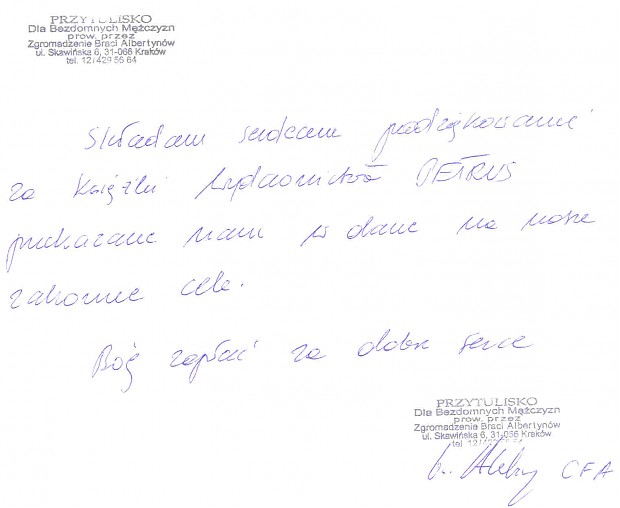 PRZYTULISKO
Dla Bezdomnych Mężczyzn
prow. przez
Zgromadzenie Braci Albertynów
ul. Skawińska 6, 31-066 Kraków
tel. 12/429 56 64
Składam serdeczne podziękowanie
za książki Wydawnictwa PETRUS
przekazane nam w darze na nasze
zakonne cele.
Bóg zapłać za dobre serce
PRZYTULISKO
Dla Bezdomnych Mężczyzn
prow. przez
Zgromadzenie Braci Albertynów
ul. Skawińska 6, 31-066 Kraków
tel. 12/
CFA